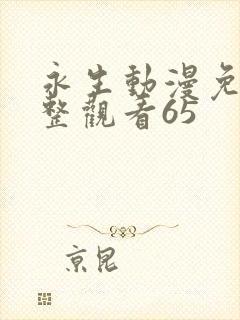 永生動漫免
整觀看65
京昆